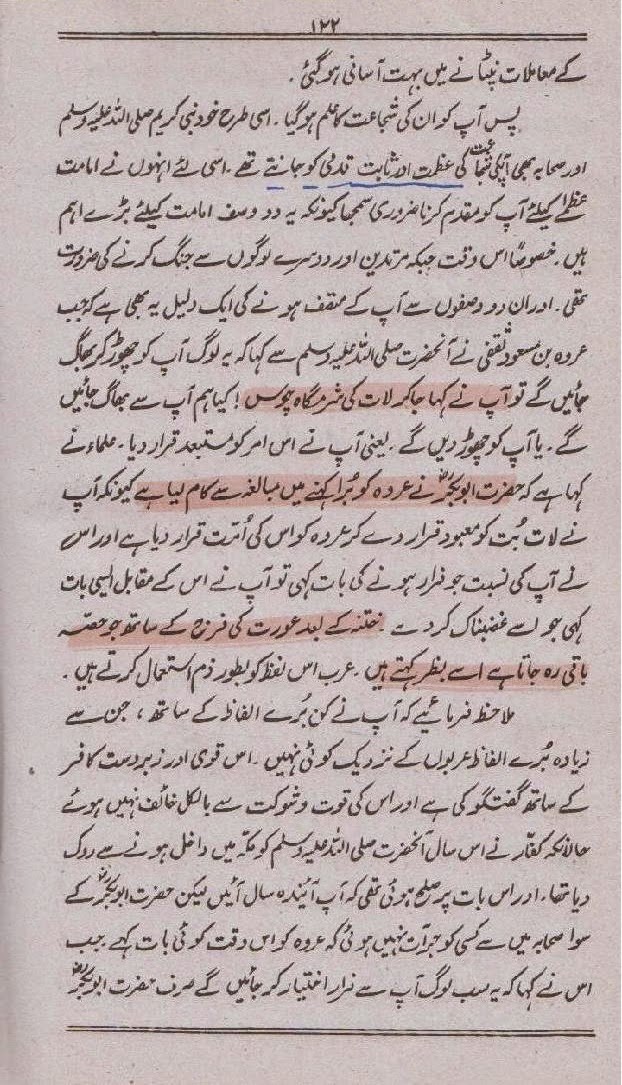 ۱۲۲
کے معاملات نپٹانے میں بہت آسانی ہوگئی ۔
پس آپ کو ان کی شجاعت کا علم ہوگیا ۔ اسی طرح خود نبی کریم صلی اللہ علیہ وسلم
اور صحابہ بھی آپکی شجاعت کی عظمت اور ثابت قدمی کو جانتے تھے ۔ اسی لئے انہوں نے امامت
عظمیٰ کیلئے آپ کو مقدم کرنا ضروری سمجھا کیونکہ یہ دو وصف امامت کیلئے بڑے اہم
ہیں ۔ خصوصاً اس وقت جبکہ مرتدین اور دوسرے لوگوں سے جنگ کرنے کی ضرورت
تھی ۔ اور ان دو وصفوں سے آپ کے متصف ہونے کی ایک دلیل یہ بھی ہے کہ جب
عروہ بن مسعود ثقفی نے آنحضرت صلی اللہ علیہ وسلم سے کہا کہ یہ لوگ آپ کو چھوڑ کر بھاگ
جائیں گے تو آپ نے کہا جا کر لات کی شرمگاہ چوس ! کیا ہم آپ سے بھاگ جائیں
گے ۔ یا آپ کو چھوڑ دیں گے ۔ یعنی آپ نے اس امر کو مستبعد قرار دیا ۔ علماء نے
کہا ہے کہ حضرت ابوبکرؓ نے عروہ کو بُرا کہنے میں مبالغہ سے کام لیا ہے کیونکہ آپ
نے لات بُت کو معبود قرار دے کر عروہ کو اس کی اُمت قرار دیا ہے اور اس
نے آپ کی نسبت جو فرار ہونے کی بات کہی تو آپ نے اس کے مقابل ایسی بات
کہی جو اسے غضبناک کر دے ۔ ختنہ کے بعد عورت کی فرج کے ساتھ جو حصّہ
باقی رہ جاتا ہے اسے بظر کہتے ہیں ۔ عرب اس لفظ کو بطور ذم استعمال کرتے ہیں ۔
ملاحظہ فرمائیے کہ آپ نے کن بُرے الفاظ کے ساتھ ، جن سے
زیادہ بُرے الفاظ عربوں کے نزدیک کوئی نہیں ۔ اس قوی اور زبردست کافر
کے ساتھ گفتگو کی ہے اور اس کی قوت و شوکت سے بالکل خائف نہیں ہوئے
حالانکہ کفار نے اس سال آنحضرت صلی اللہ علیہ وسلم کو مکہ میں داخل ہونے سے روک
دیا تھا ۔ اور اس بات پر صلح ہوئی تھی کہ آپ آئیندہ سال آئیں لیکن حضرت ابوبکرؓ کے
سوا صحابہ میں سے کسی کو جرأت نہیں ہوئی کہ عروہ کو اس وقت کوئی بات کہے جب
اس نے کہا کہ یہ سب لوگ آپ سے فرار اختیار کر جائیں گے صرف حضرت ابوبکرؓ